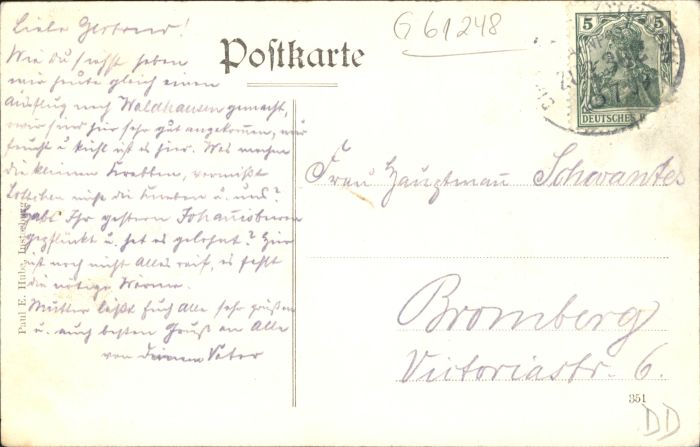 G 61248
Postkarte
Liebe Gertrud!
Wie Du siehst haben
wir heute gleich einen
Ausflug nach Waldhausen gemacht,
wir sind hier sehr gut angekommen, nur
feucht u. kühl ist es hier. Was machen
die kleinen Krabben, vermißt
Lottchen nicht die Kneben u. uns?
Habt Ihr gestern Johannisbeeren
gepflückt u. hat es gelohnt? Hier
ist noch nicht Alles reif, es fehlt
die nötige Wärme.
Mutter läßt Euch Alle sehr grüßen
u. auch besten Gruß an Alle
von Deinem Vater
5 5
DEUTSCHES R
Frau Hauptmann Schwantes
Bromberg
Victoriastr. 6.
Paul E. Hube, Insterburg
351
DD